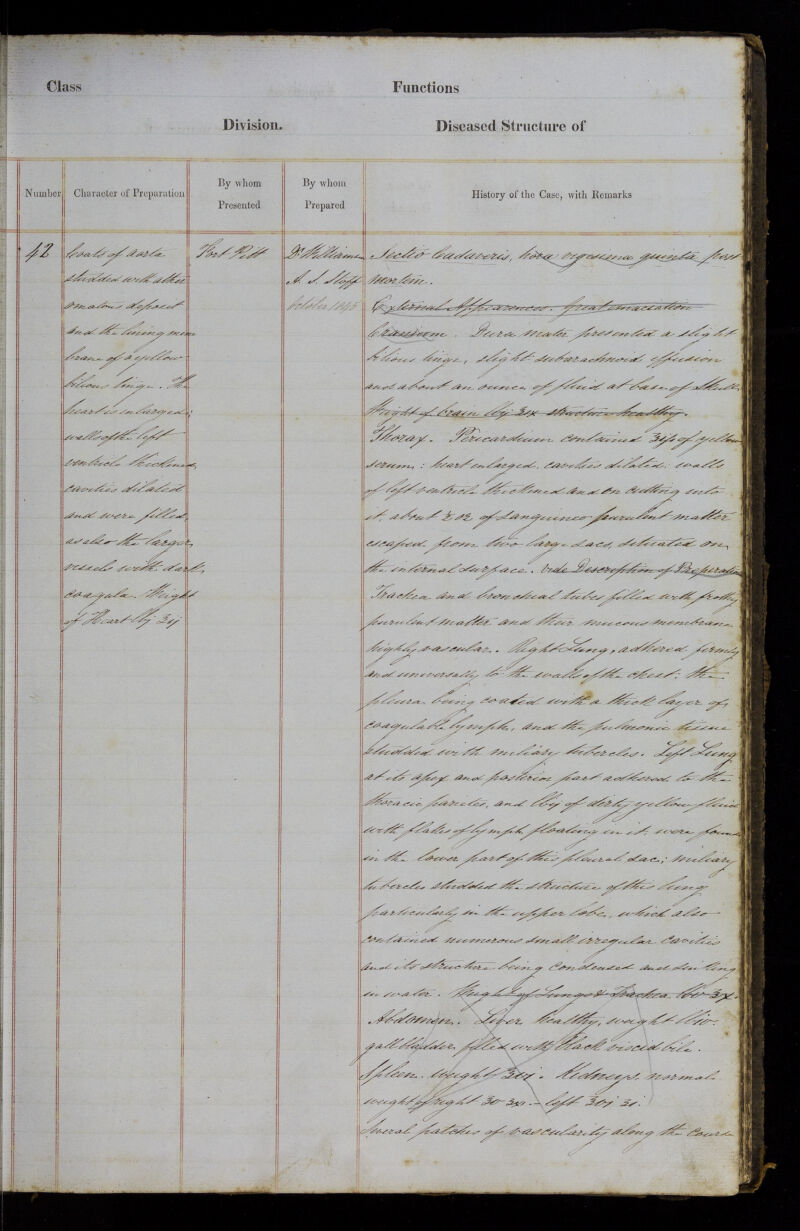 Class
Functions
Division.
Diseased Structure of
Number
Character of Preparation
By whom
Presented
By whom
Prepared
History of the Case, with Remarks
42
Coats of aorta
studded with ather
omatous deposit
and the lining mem
brane of a yellow
bilious tinge. The
heart is enlarged;
walls of the left
ventricle thickened,
cavities dilated
and were filled,
as also the larger
vessels with dark
coagula. Weight
of Heart
Fort Pitt
Dr Williamson
A. S. Stoff
October 1845
Sectio Cadaveris, hora vigesima quinta post
mortem.
External Appearances. Great emaciation
Cranium. Dura mater presented a slight
bilious tinge, slight subarachnoid effusion
and about an ounce of fluid at base of Skull.
Weight of brain structure healthy.
Thorax. Pericardium contained of yellow
serum: heart enlarged, cavities dilated. walls
of left ventricle thickened and on cutting into
it, about of sanguineo-purulent matter
escaped from two large sacs, situated on
the internal surface. vide Description of Preparation
Trachea and bronchial tubes filled with frothy
purulent matter and their mucous membrane
highly vascular. Right Lung, adhered firmly
and universally to the walls of the chest: the
pleura being coated with a thick layer of
coagulable lymph, and the pulmonic tissue
studded with miliary tubercles. Left Lung
at its apex and posterior part adhered to the
thoracic parietes, and of dirty yellow fluid
with flakes of lymph floating in it, were found
in the lower part of this pleural sac; miliary
tubercles studded the structure of this lung
particularly in the upper lobe, which also
contained numerous small irregular cavities
and its structure being condensed and sinking
in water. Weight of Lungs & Trachea
Abdomen. Liver healthy, weight
gall bladder filled with black viscid bile.
Spleen weight Kidneys normal
weight of right left
Several patches of vascularity along the course